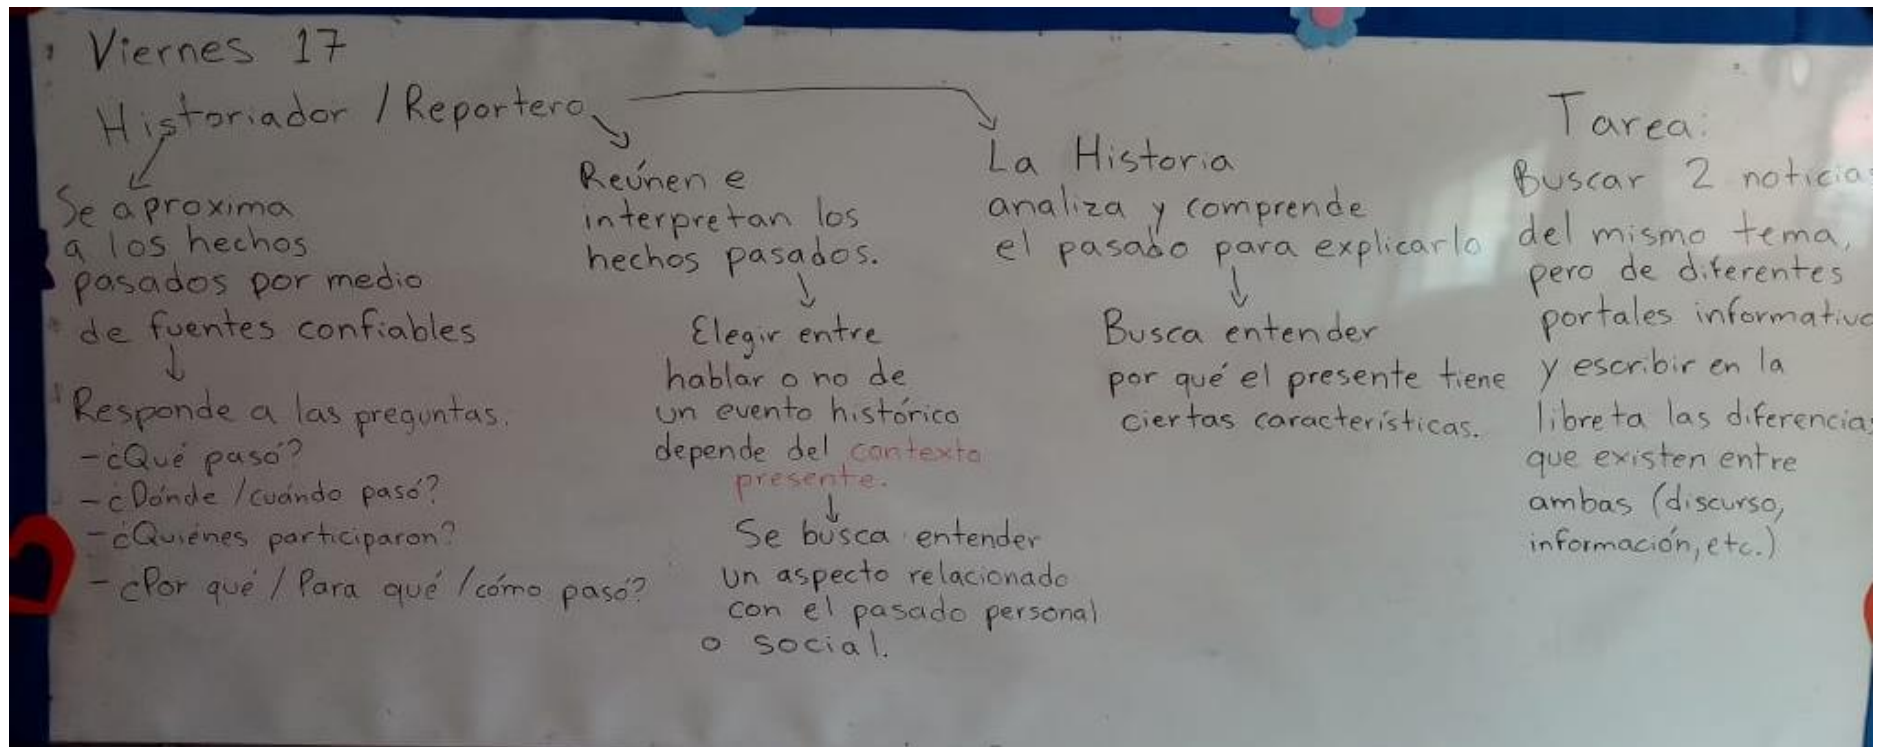 Viernes 17
Historiador / Reportero
Se aproxima
a los hechos
pasados por medio
de fuentes confiables
Responde a las preguntas.
-¿Qué pasó?
-¿Dónde /cuándo pasó?
-¿Quiénes participaron?
-¿Por qué / Para qué /cómo pasó?
Reúnen e
interpretan los
hechos pasados.
Elegir entre
hablar o no de
un evento histórico
depende del contexto
presente.
Se busca entender
un aspecto relacionado
con el pasado personal
o social.
La Historia
analiza y comprende
el pasado para explicarlo
Busca entender
por qué el presente tiene
ciertas características.
Tarea:
Buscar 2 noticias
del mismo tema,
pero de diferentes
portales informativo
y escribir en la
libreta las diferencias
que existen entre
ambas (discurso,
información, etc.)